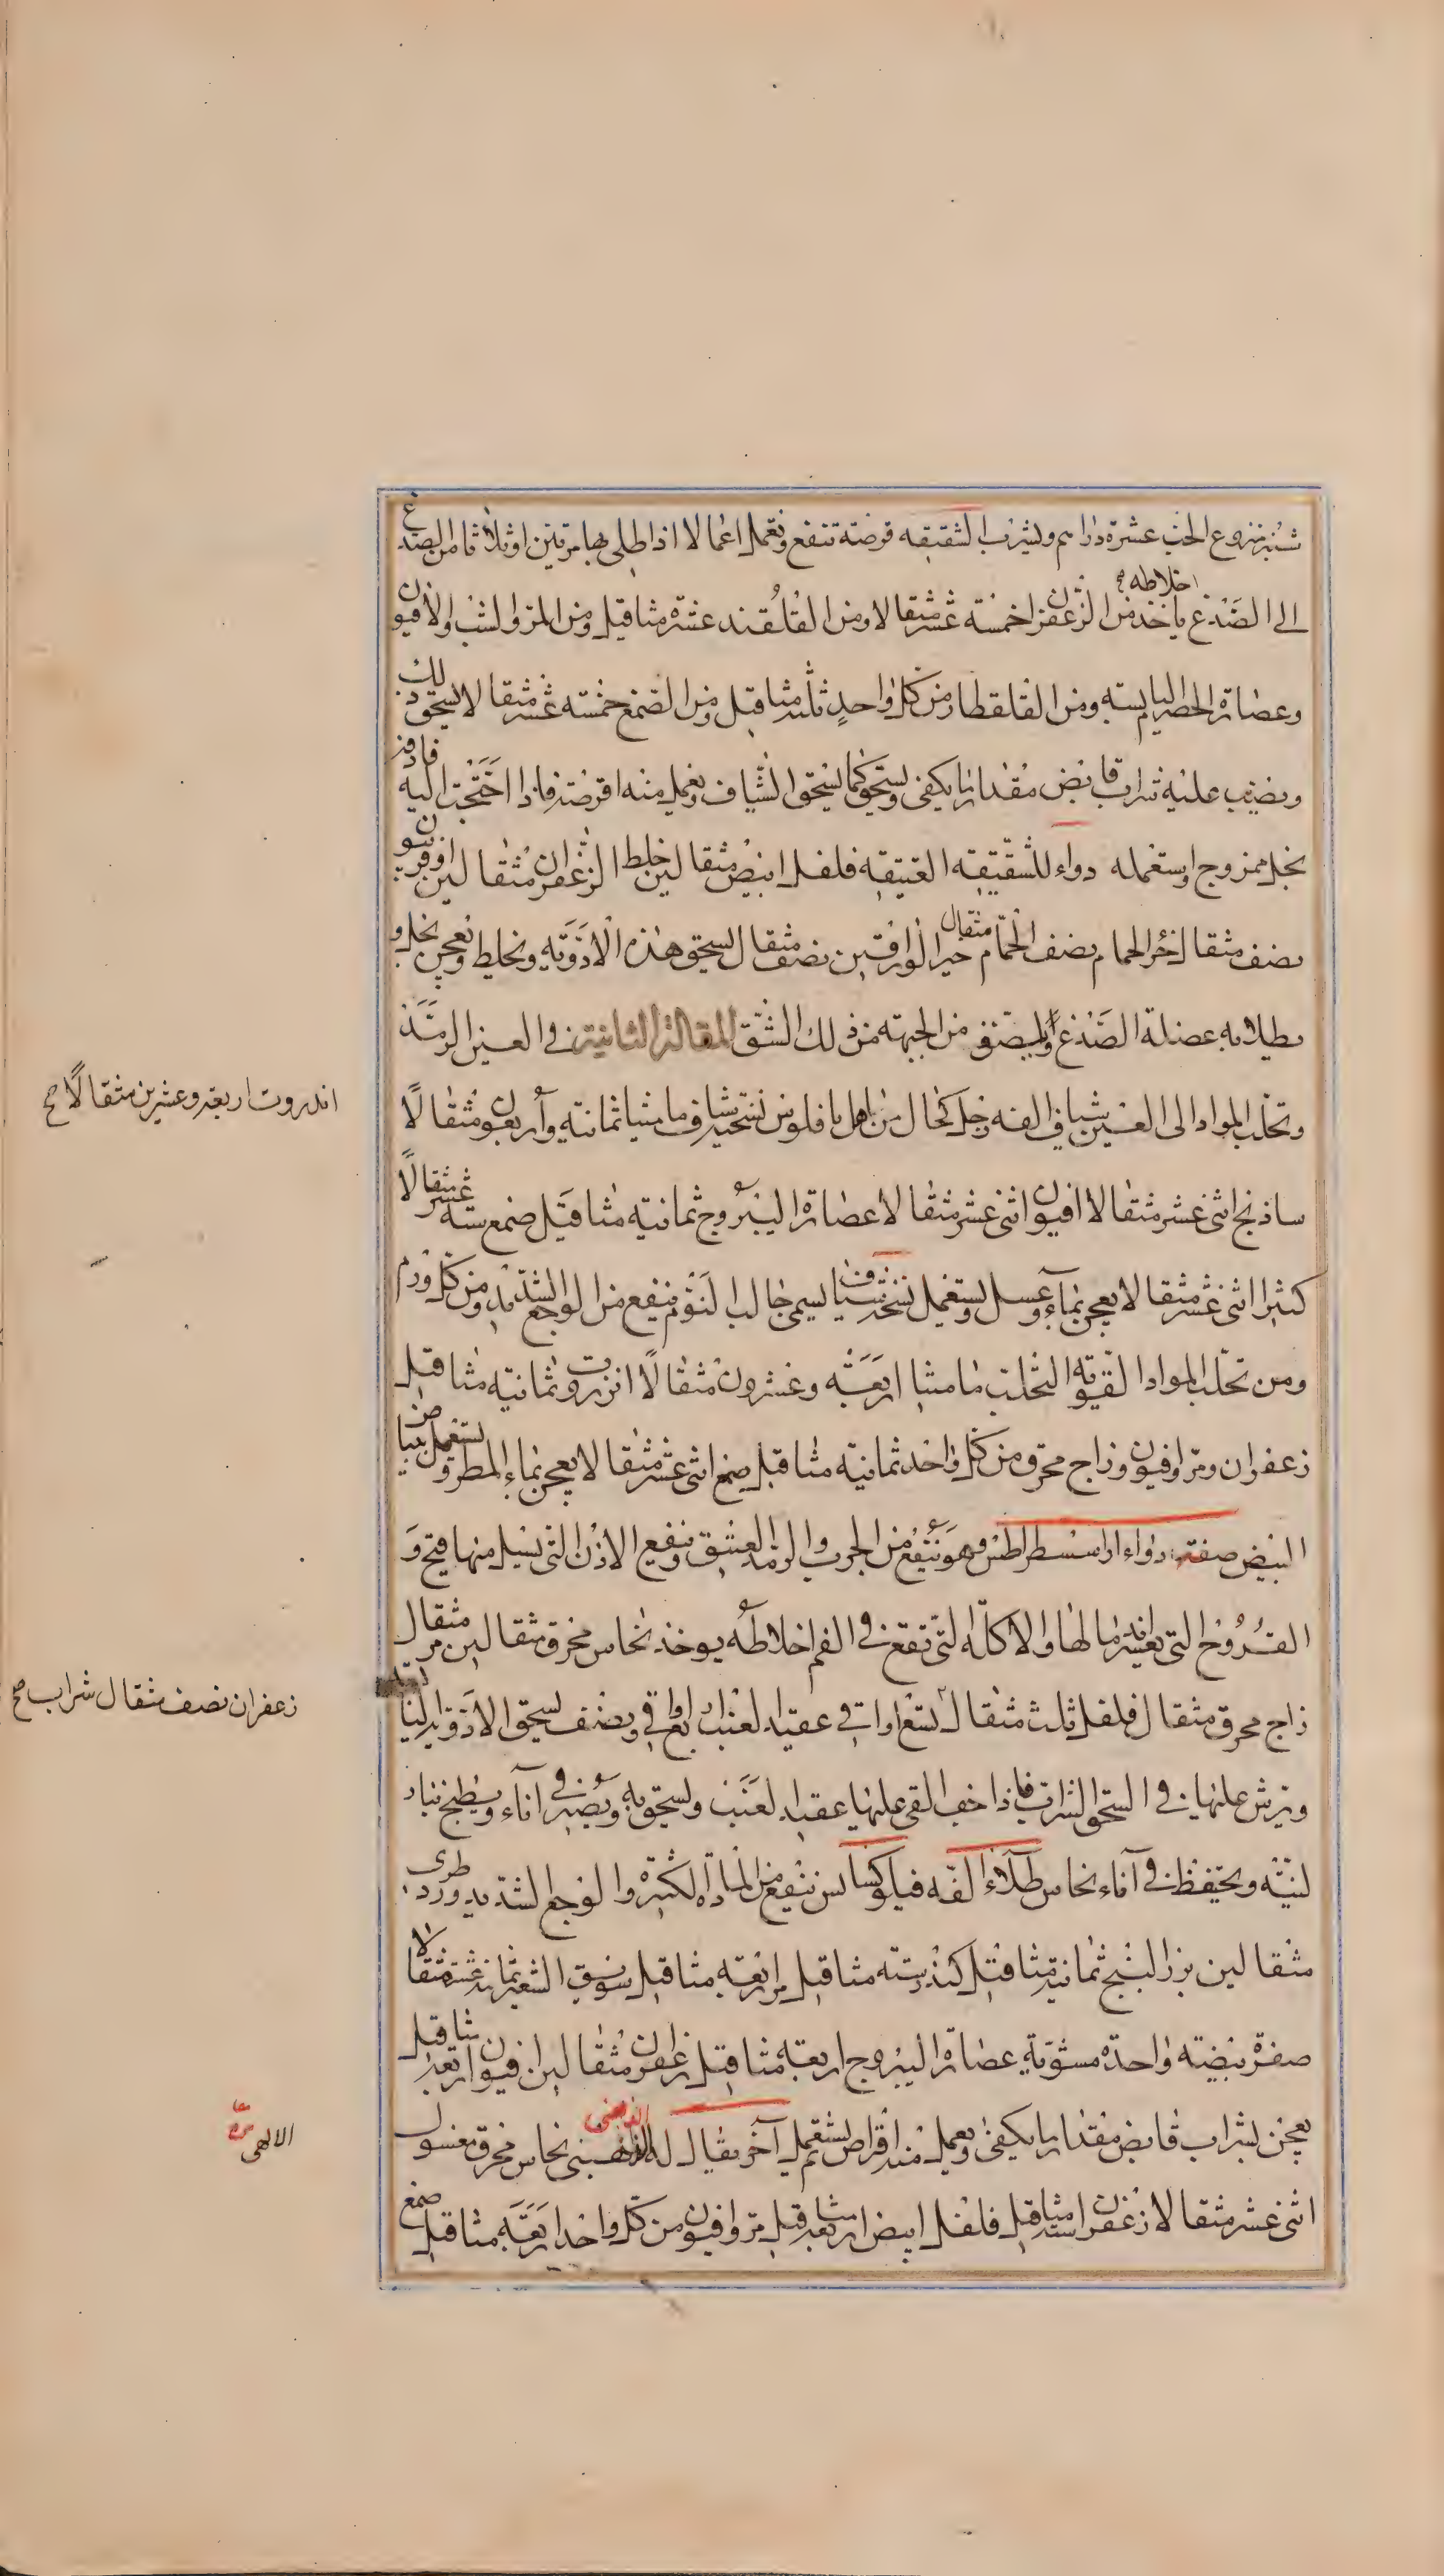 شبر منزوع الحب عشرة دراهم ويشرب الشقيقه قرصة تنفع وتعمل اعمالا اذا طلى بها مرتين او ثلاثا من الصدغ
الى الصدغ اخلاطه ياخذ من الزعفران خمسة عشر مثقالا ومن القلقند عشرة مثاقيل ومن المر والشب والافيون
وعصارة الحصرم اليابسه ومن القلقطار من كل واحد ثلثه مثاقيل ومن الصمغ خمسته عشر مثقالا يسحق ذلك
ويصب عليه شراب قابض مقدار ما يكفى ويسحق كما يسحق الشياف ويعمل منه اقرصة فاذا احتجت اليه فادفه
بخل ممزوج واستعمله دواء للشقيقه العتيقه فلفل ابيض مثقالين خلط الزعفران مثقالين افربيون
نصف مثقال خرء الحمام نصف مثقال نصف مثقال يسحق هذه الادويه ويخلط وتعجن بخل و
يطلا به عضلة الصدغ من الجبهته من ذلك الشق المقالة الثانية في العين الرمد
وتحلب المواد الى العين شياف الفه رجل كحال من اهل شياف ماميثا ثمانيه واربعون مثقالا
ساذنج اثنى عشر مثقالا افيون اثنى عشر مثقالا عصارة اليبروج ثمانية مثاقيل صمغ سته عشر مثقالا
كثيرا اثنى عشر مثقالا يعجن بماء وعسل ويستعمل نسخة شياف يسمى جالب النوم ينفع من الوجع الشديد ومن كل ورم
ومن تحلب المواد القويه التحلب ماميثا اربعة وعشرون مثقالا انزروت وثمانية مثاقيل
زعفران ومر وافيون وزاج محرق من كل واحد ثمانية مثاقيل صمغ اثنى عشر مثقالا يعجن بماء المطر ويستعمل ببياض
البيض صفته دواء اراسسطراطس وهو ينفع من الجرب والرمد العتيق وينفع الاذن التي يسيل منها قيح و
القروح التي يعسر اندمالها والاكله التي تقع في الفم اخلاطه يوخذ نحاس محرق مثقالين مر مثقال
زاج محرق مثقال فلفل ثلث مثقال تسع اواق عقيد العنب اربع اواقي ونصف يسحق الادويه
ويرش عليها في السحق الشراب فاذا جف القى عليها عقيد العنب ويسحق به ويصير في آناء ويطبخ بنار
لينه ويحتفظ في آناء نحاس طلاء الفه فيلوكسانس ينفع من المادة الكثيرة والوجع الشديد ورد طرى
مثقالين بزر البنج ثمانية مثاقيل كندر سته مثاقيل مر اربعة مثاقيل سويق الشعير ثمانية عشر مثقالا
صفرة بيضته واحدة مشوية عصارة اليبروج اربعة مثاقيل زعفران مثقالين افيون اربعة مثاقيل
يعجن بشراب قابض مقدار ما يكفى ويعمل منه اقراص يستعمل آخر يقال له الذهبى نحاس محرق مغسول
اثنى عشر مثقالا زعفران سته مثاقيل فلفل ابيض اربعة مثاقيل مر وافيون من كل واحد اربعة مثاقيل صمغ
اندروت اربعة وعشرين مثقالًا صح
زعفران نصف مثقال شراب صح
الالهى